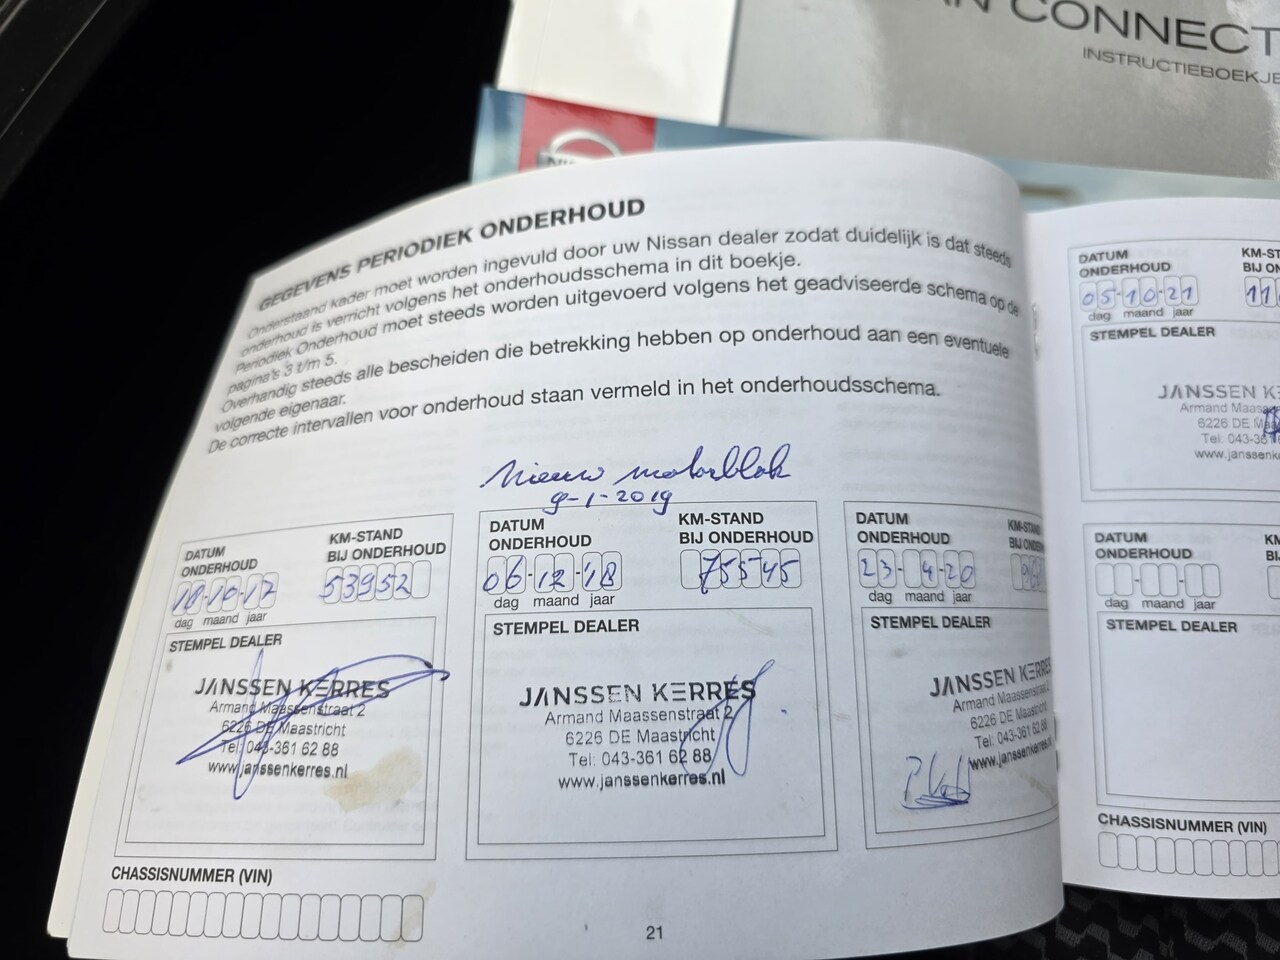 AN CONNECT
INSTRUCTIEBOEKJE
GEGEVENS PERIODIEK ONDERHOUD
Onderstaand kader moet worden ingevuld door uw Nissan dealer zodat duidelijk is dat steeds
onderhoud is verricht volgens het onderhoudsschema in dit boekje.
Periodiek Onderhoud moet steeds worden uitgevoerd volgens het geadviseerde schema op de
pagina's 3 t/m 5.
Overhandig steeds alle bescheiden die betrekking hebben op onderhoud aan een eventuele
volgende eigenaar.
De correcte intervallen voor onderhoud staan vermeld in het onderhoudsschema.
Nieuw motorblok
9-1-2019
DATUM
ONDERHOUD
KM-STAND
BIJ ONDERHOUD
18-10-17
53952
dag maand jaar
STEMPEL DEALER
JANSSEN KERRES
Armand Maassenstraat 2
6226 DE Maastricht
Tel: 043-361 62 88
www.janssenkerres.nl
CHASSISNUMMER (VIN)
DATUM
ONDERHOUD
KM-STAND
BIJ ONDERHOUD
06-12-18
75545
dag maand jaar
STEMPEL DEALER
JANSSEN KERRES
Armand Maassenstraat 2
6226 DE Maastricht
Tel: 043-361 62 88
www.janssenkerres.nl
DATUM
ONDERHOUD
KM-STAND
BIJ ONDERH
23-4-20
dag maand jaar
STEMPEL DEALER
JANSSEN KERRES
Armand Maassenstraat
6226 DE Maastricht
Tel: 043-361 62 88
www.janssenkerres.nl
21
DATUM
ONDERHOUD
KM-ST
BIJ ON
05-10-21
11
dag maand jaar
STEMPEL DEALER
JANSSEN KE
Armand Maass
6226 DE Ma
Tel: 043-361
www.janssenk
DATUM
ONDERHOUD
KM
BIJ
dag maand jaar
STEMPEL DEALER
CHASSISNUMMER (VIN)